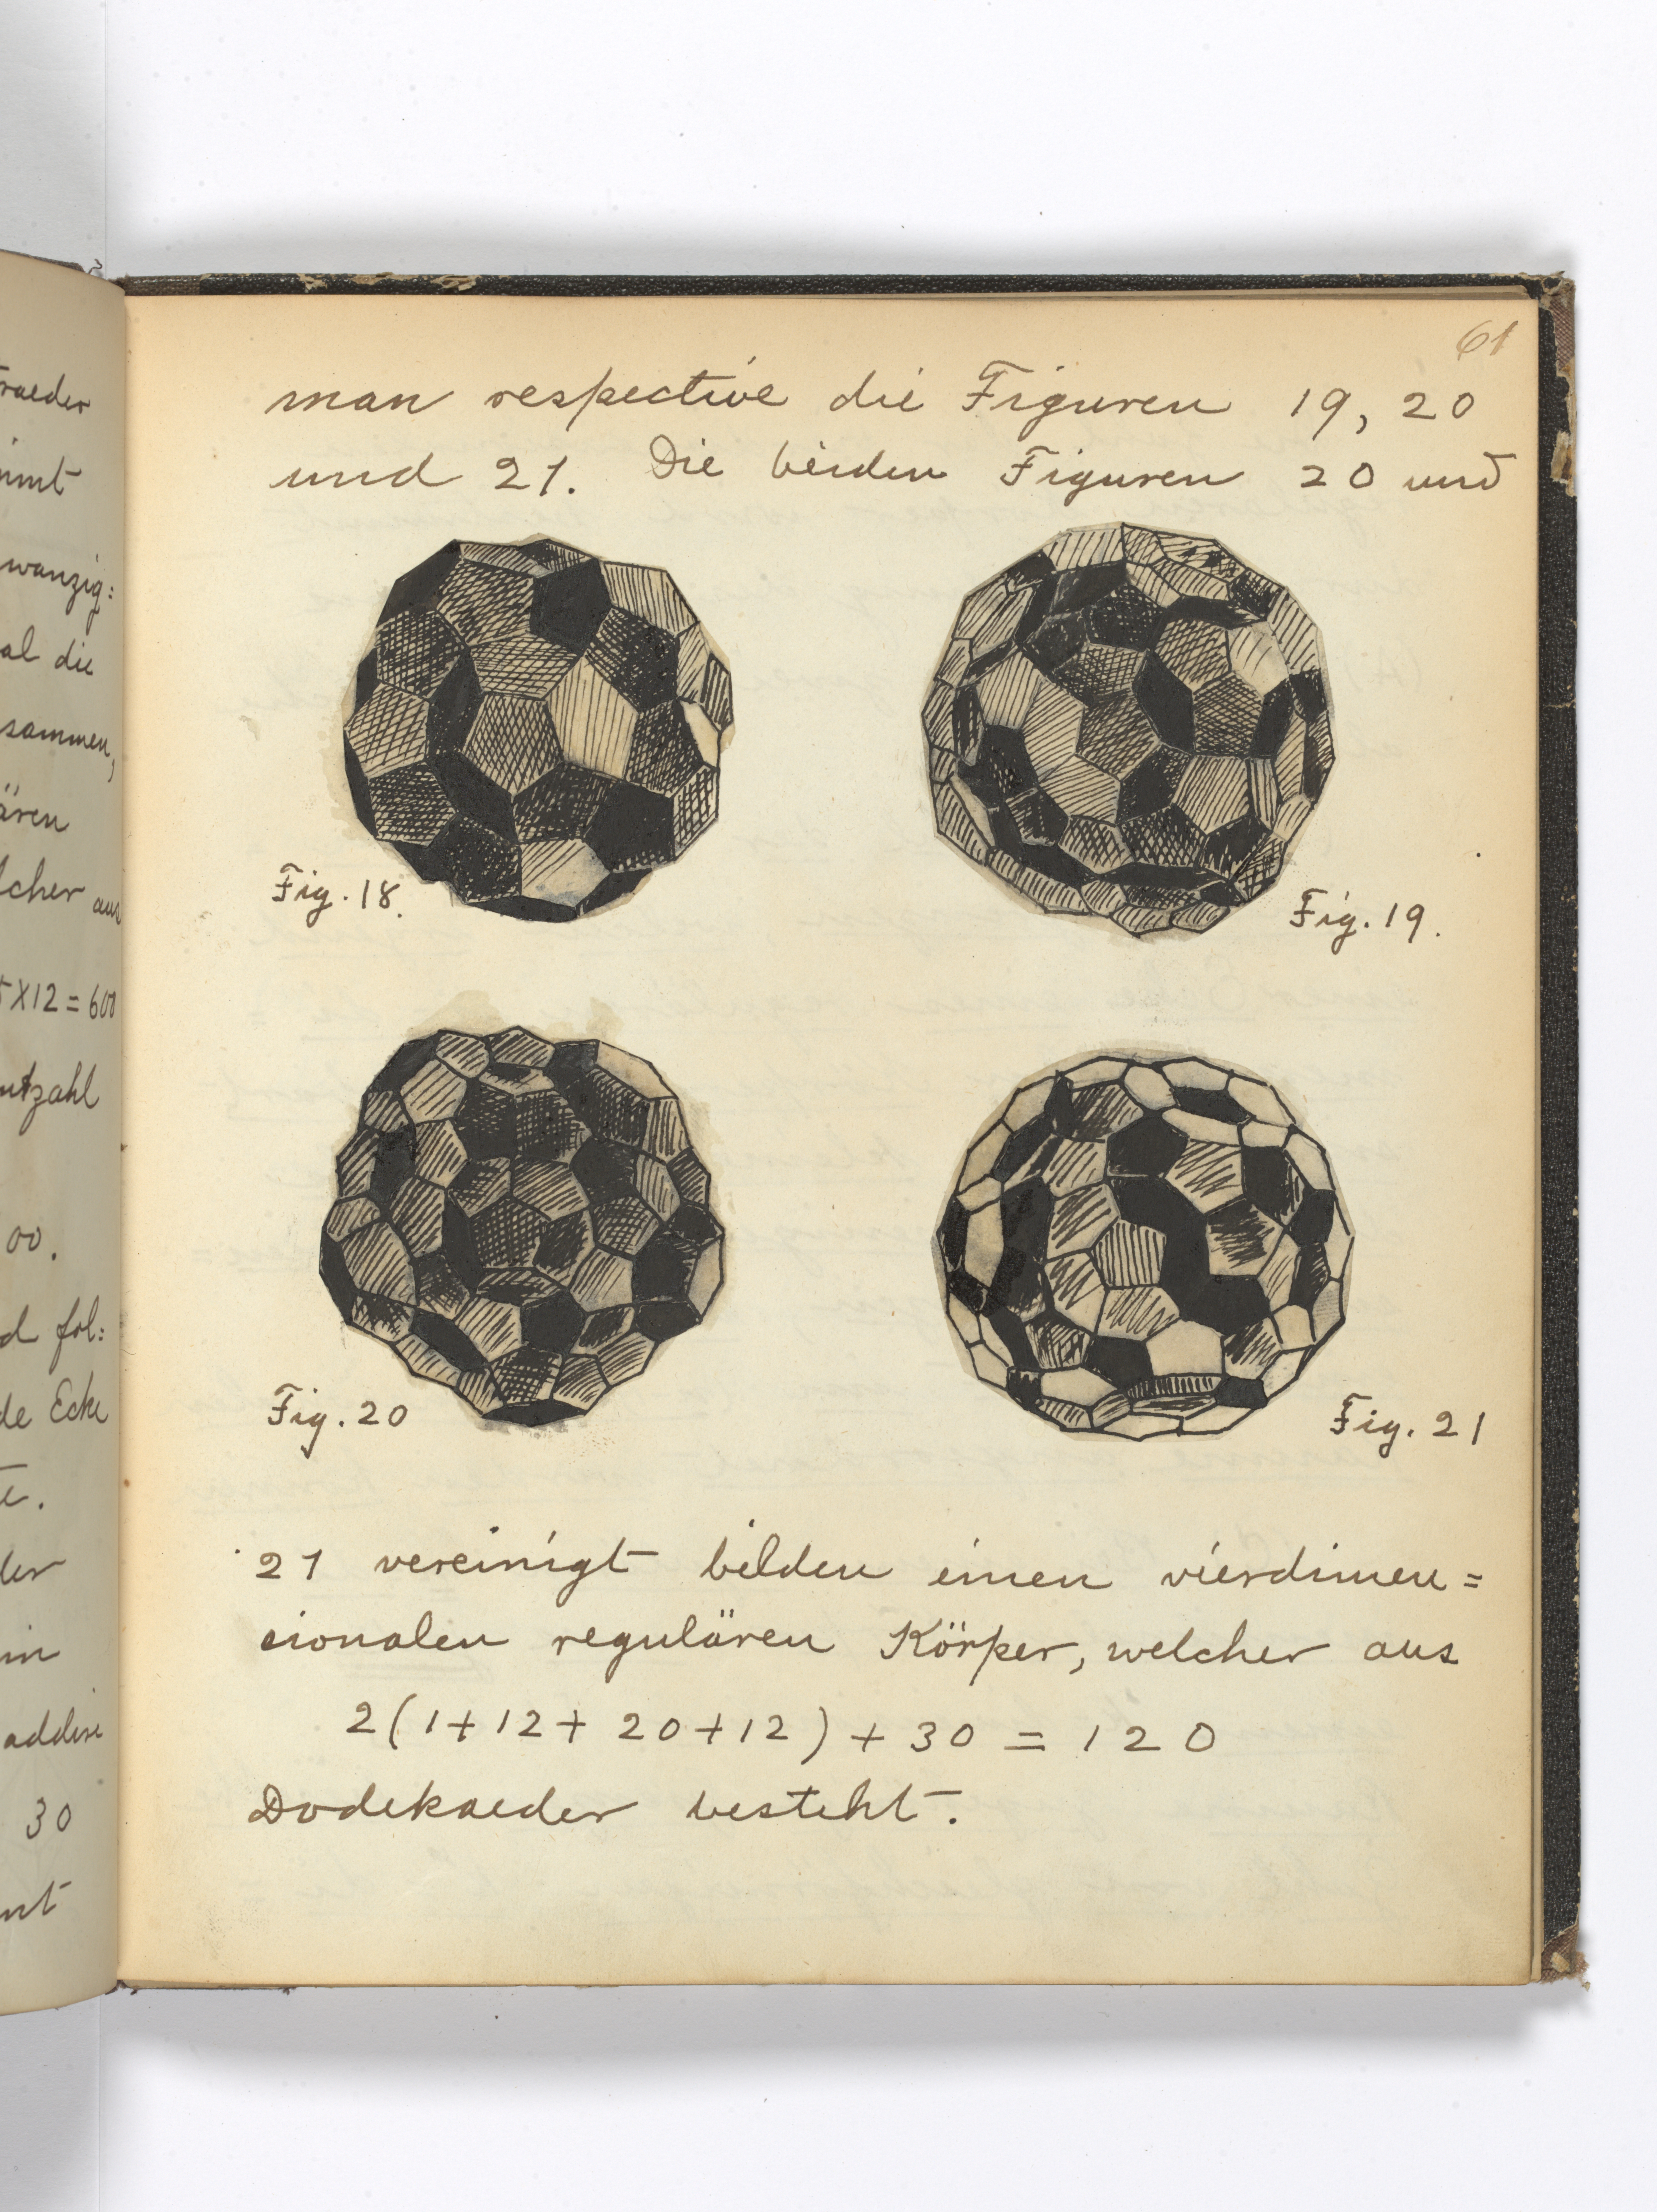 raeder
immt
wanzig:
al die
sammen,
ären
lcher aus
5×12=600
utzahl
00.
d fol:
de Ecke
te.
der
in
addire
30
nt
61
man respective die Figuren 19, 20
und 21. Die beiden Figuren 20 und
Fig. 18.
Fig. 19.
Fig. 20
Fig. 21
21 vereinigt bilden einen vierdimen=
sionalen regulären Körper, welcher aus
2(1+12+20+12)+30=120
Dodekaeder besteht.